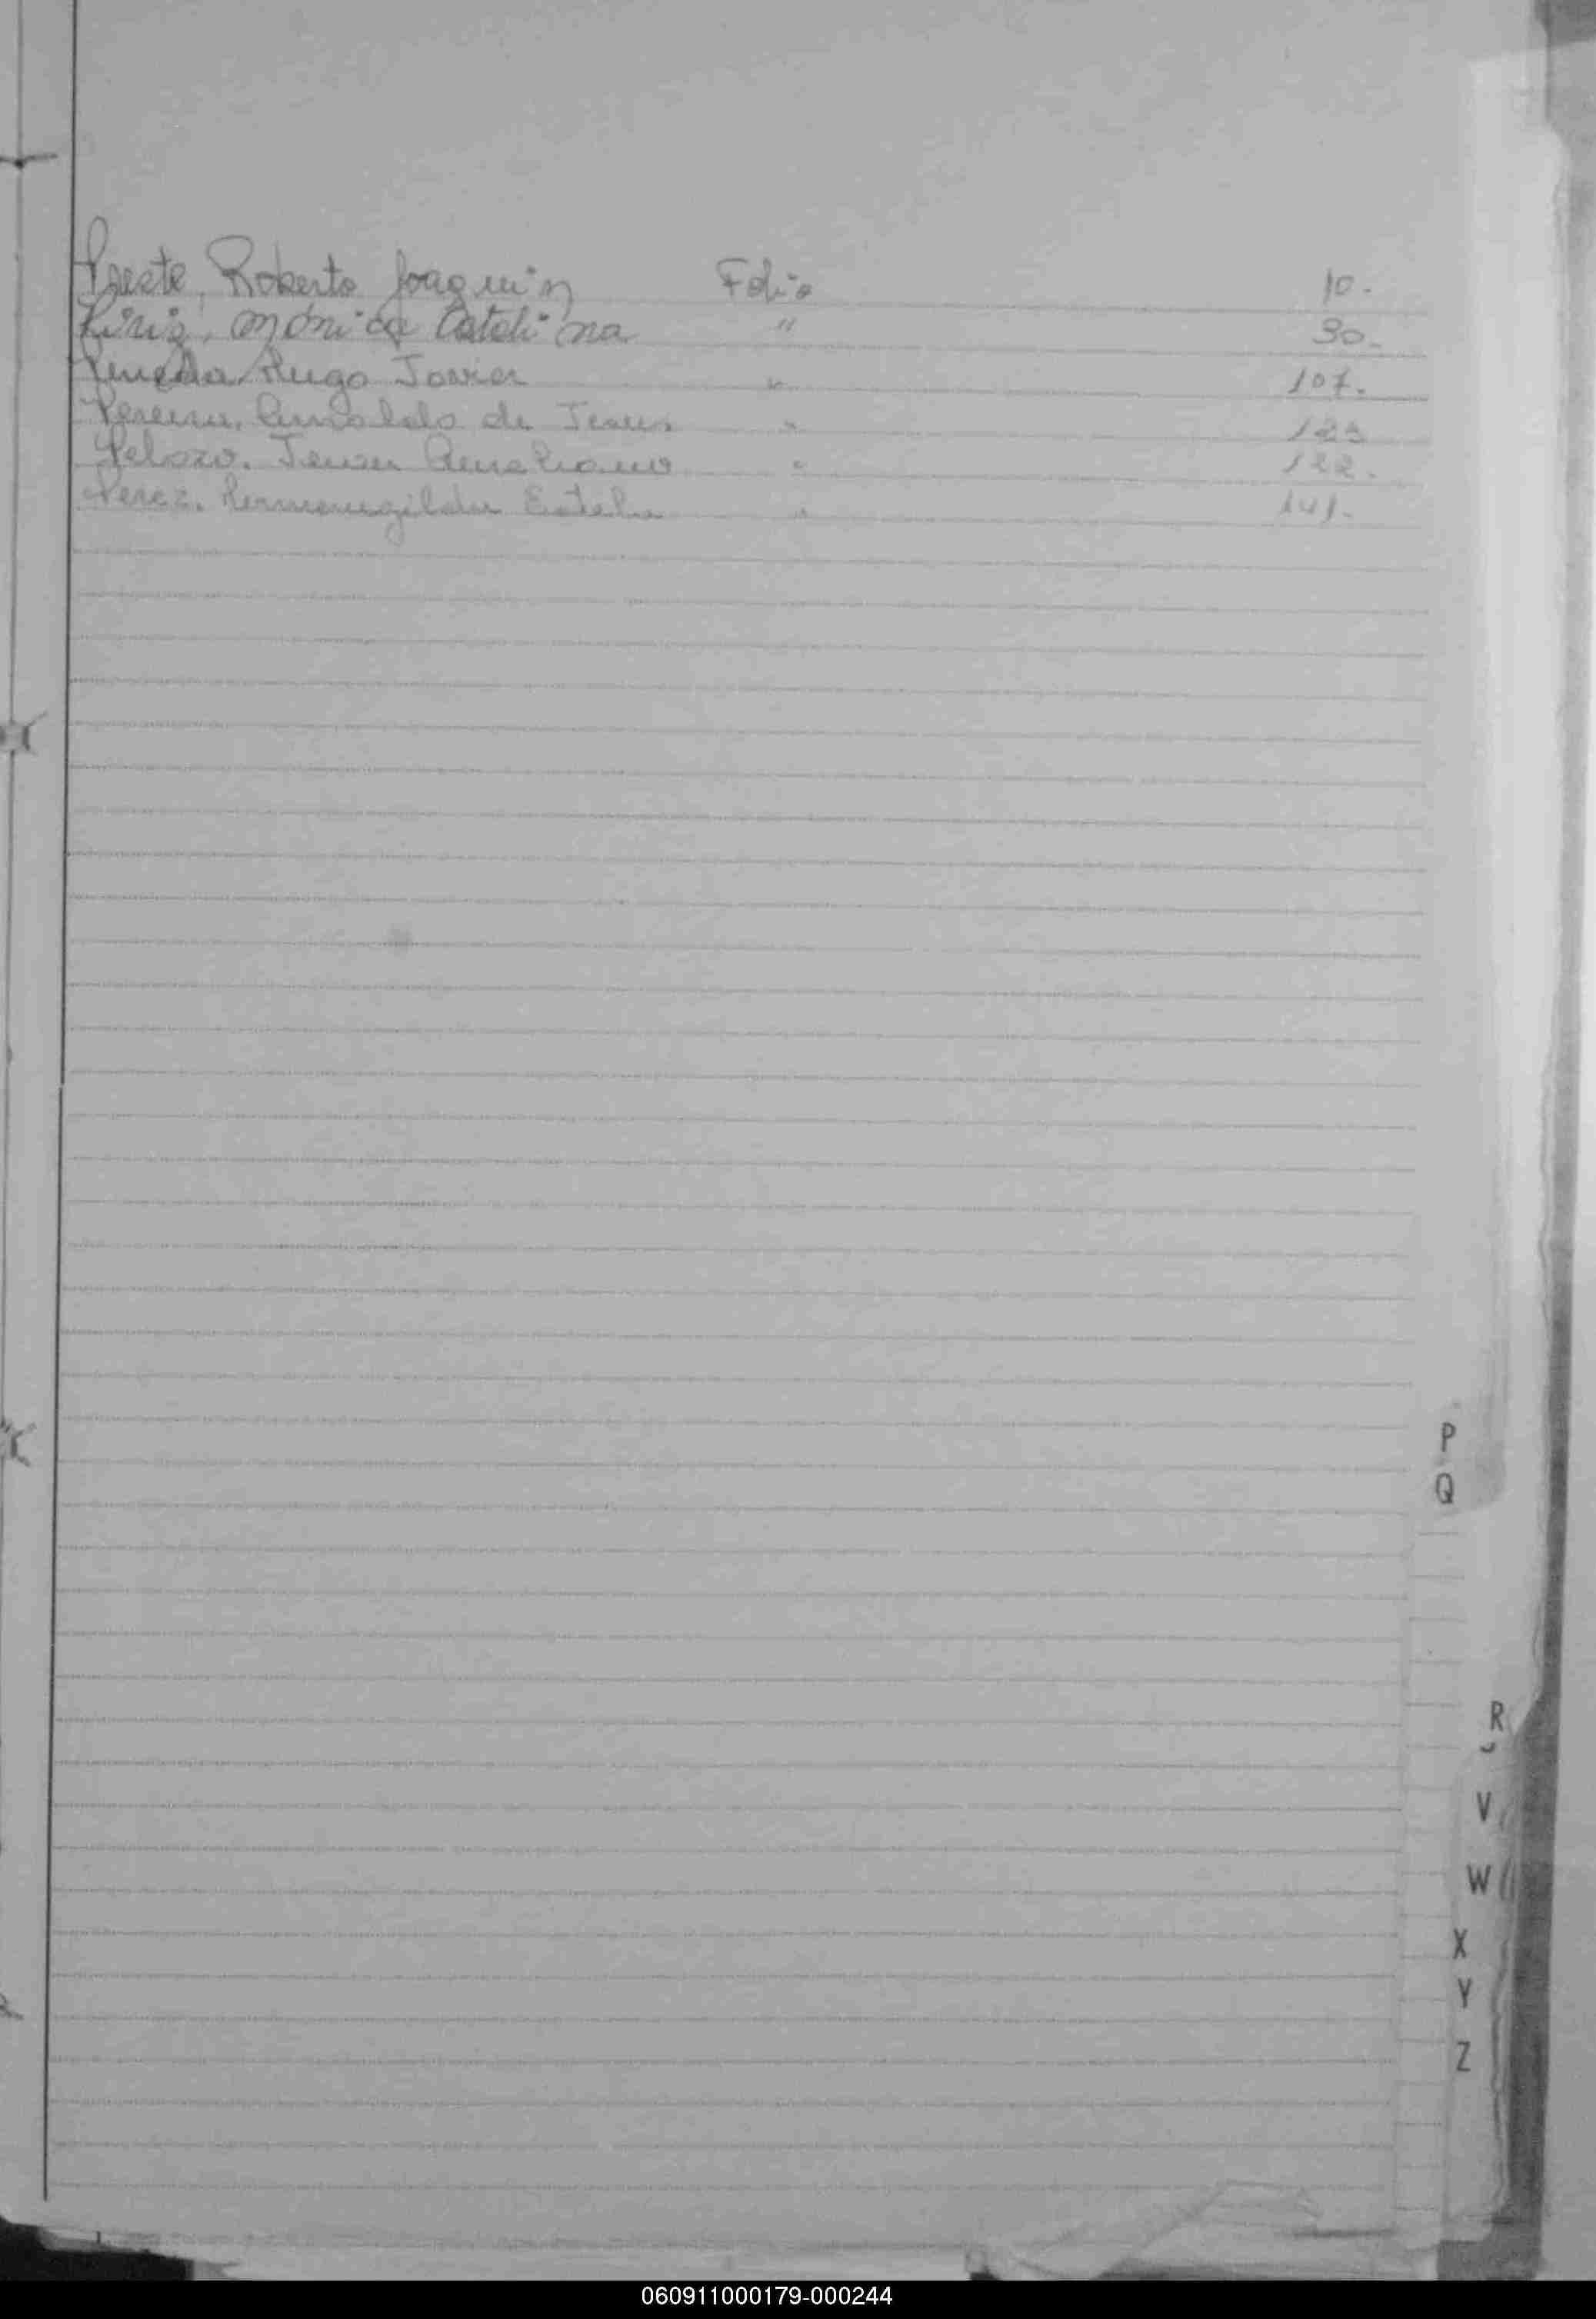 Preste, Roberto Joaquin Folio 10.-
Piriz, Mónica Catali na " 30.-
Hugo Javier " 107.
Pereira, de Jesus " 123
Pelozo, " 122.
Perez, Hermenegilda Estela " 141.-
P
Q
R
V
W
X
Y
Z
060911000179-000244